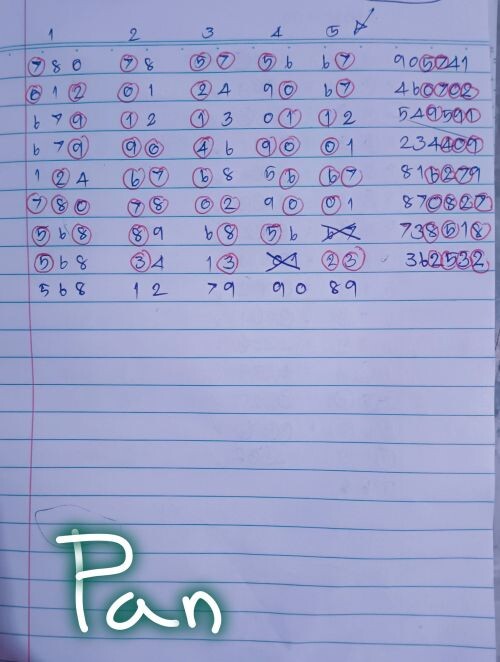 1 2 3 4 5
780 78 57 56 67 905741
012 01 24 90 67 460702
679 12 13 01 12 549591
679 90 46 90 01 234409
124 67 68 56 67 816279
780 78 02 90 01 870827
568 89 68 56 738518
568 34 13 23 362532
568 12 79 90 89
Pan